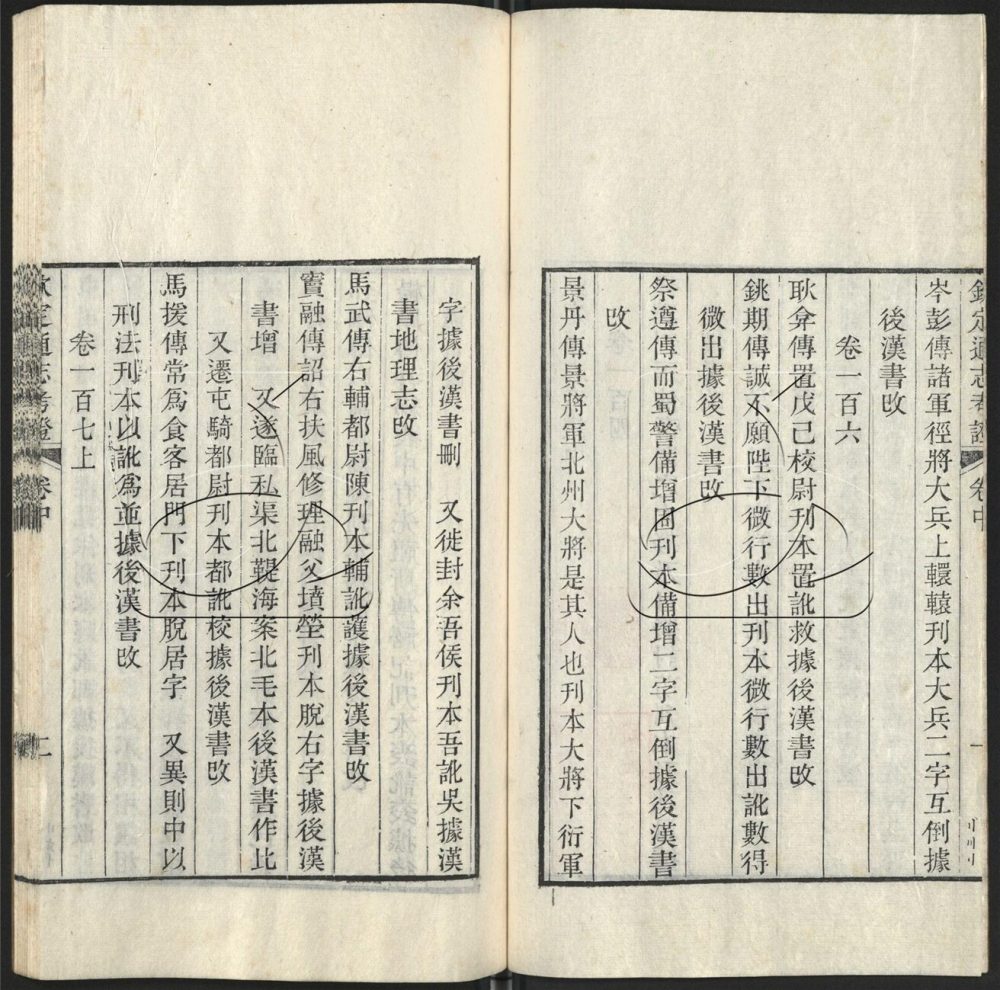 欽定通志考證 卷中 一
岑彭傳諸軍徑將大兵上轘轅刊本大兵二字互倒據
後漢書改
卷一百六
耿弇傳置戊己校尉刊本置訛救據後漢書改
銚期傳誠不願陛下微行數出刊本微行數出訛數得
微出據後漢書改
祭遵傳而蜀警備增固刊本備增二字互倒據後漢書
改
景丹傳景將軍北州大將是其人也刊本大將下衍軍
字據後漢書刪 又徙封余吾侯刊本吾訛吳據漢
書地理志改
馬武傳右輔都尉陳刊本輔訛護據後漢書改
竇融傳詔右扶風修理融父墳塋刊本脫右字據後漢
書增 又遂臨私渠北鞮海案北毛本後漢書作比
又遷屯騎都尉刊本都訛校據後漢書改
馬援傳常為食客居門下刊本脫居字 又異則中以
刑法刊本以訛為並據後漢書改
卷一百七上
欽定通志考證 卷中 二